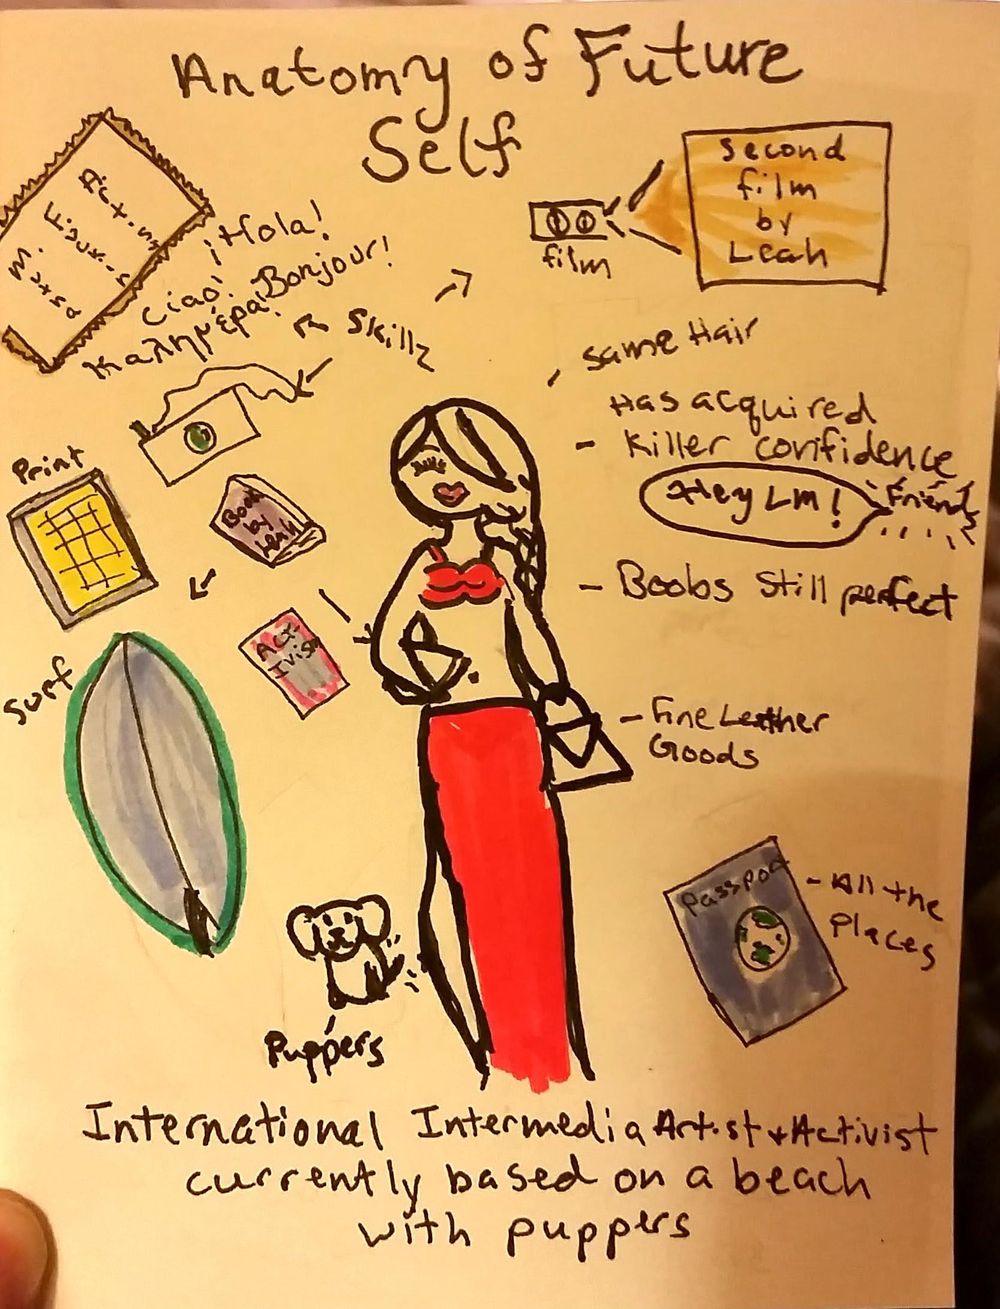 Anatomy of Future
Self
¡Hola!
Ciao! Bonjour!
Καλημέρα!
Skillz
second
film
by
Leah
film
same Hair
Has acquired
- Killer confidence
Hey Lm!
Friends
- Boobs still perfect
Print
Book
by
Leah
Act-
ivism
Surf
- Fine Leather
Goods
Passport
- All the
Places
Puppers
International Intermedia Artist + Activist
currently based on a beach
with puppers